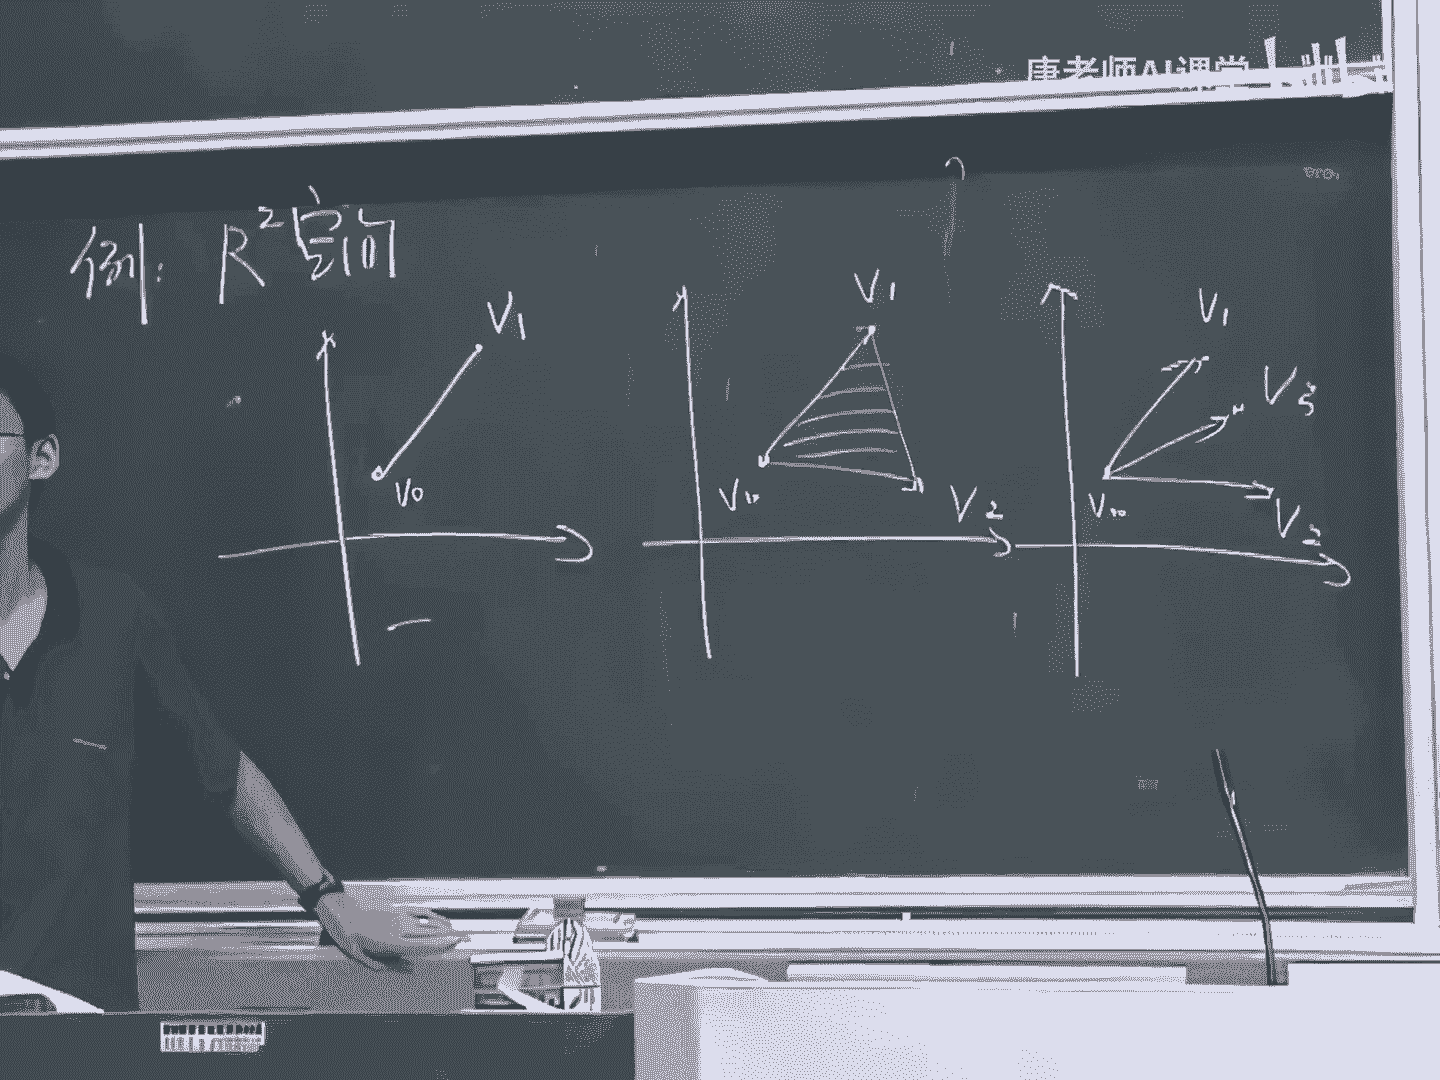 唐老师AI课堂
例: R² 空间
V₁
V₀
V₁
V₂
V₁
V₃
V₂